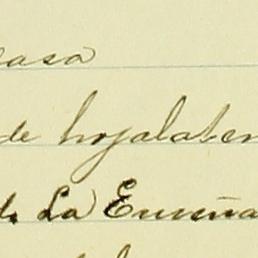 casa
de hojalater
de La Enseña